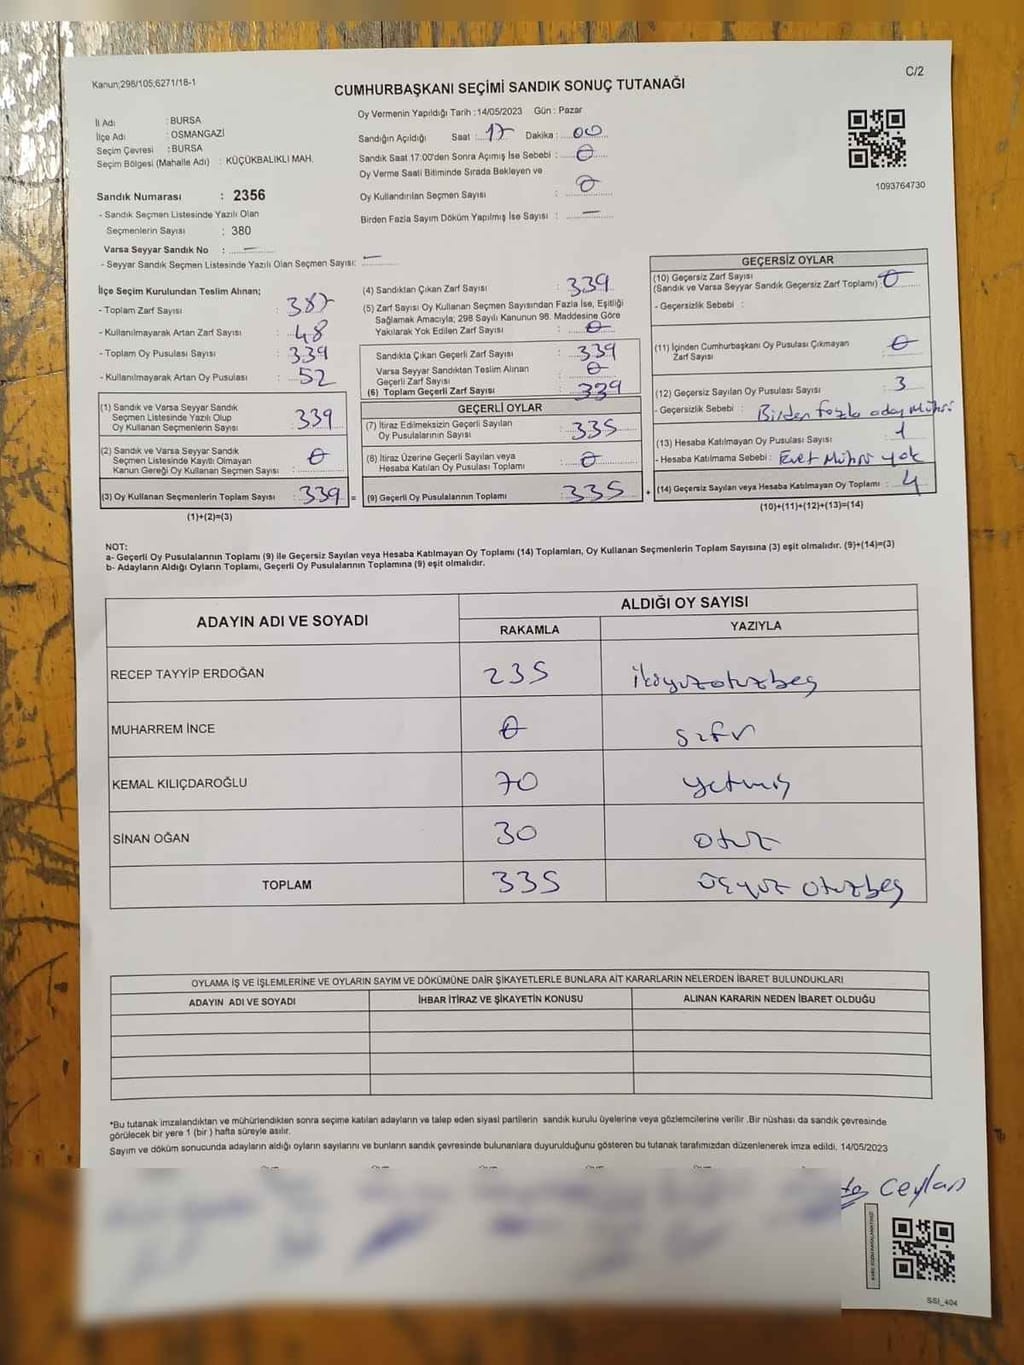 Kanun;298/105;6271/18-1
C/2
CUMHURBAŞKANI SEÇİMİ SANDIK SONUÇ TUTANAĞI
İl Adı : BURSA
İlçe Adı : OSMANGAZİ
Seçim Çevresi : BURSA
Seçim Bölgesi (Mahalle Adı) : KÜÇÜKBALIKLI MAH.
Oy Vermenin Yapıldığı Tarih :14/05/2023 Gün : Pazar
Sandığın Açıldığı Saat : 17 Dakika : 00
Sandık Saat 17:00'den Sonra Açımış İse Sebebi : 0
Oy Verme Saati Bitiminde Sırada Bekleyen ve
Oy Kullandırılan Seçmen Sayısı : 0
Birden Fazla Sayım Döküm Yapılmış İse Sayısı : —
1093764730
Sandık Numarası : 2356
- Sandık Seçmen Listesinde Yazılı Olan
Seçmenlerin Sayısı : 380
Varsa Seyyar Sandık No : —
- Seyyar Sandık Seçmen Listesinde Yazılı Olan Seçmen Sayısı: —
İlçe Seçim Kurulundan Teslim Alınan;
- Toplam Zarf Sayısı : 387
- Kullanılmayarak Artan Zarf Sayısı : 48
- Toplam Oy Pusulası Sayısı : 339
- Kullanılmayarak Artan Oy Pusulası : 52
(1) Sandık ve Varsa Seyyar Sandık
Seçmen Listesinde Yazılı Olup
Oy Kullanan Seçmenlerin Sayısı : 339
(2) Sandık ve Varsa Seyyar Sandık
Seçmen Listesinde Kayıtlı Olmayan
Kanun Gereği Oy Kullanan Seçmen Sayısı : 0
(3) Oy Kullanan Seçmenlerin Toplam Sayısı : 339 =
(1)+(2)=(3)
(4) Sandıktan Çıkan Zarf Sayısı : 339
(5) Zarf Sayısı Oy Kullanan Seçmen Sayısından Fazla İse, Eşitliği
Sağlamak Amacıyla; 298 Sayılı Kanunun 98. Maddesine Göre
Yakılarak Yok Edilen Zarf Sayısı : 0
Sandıkta Çıkan Geçerli Zarf Sayısı : 339
Varsa Seyyar Sandıktan Teslim Alınan
Geçerli Zarf Sayısı : 0
(6) Toplam Geçerli Zarf Sayısı : 339
GEÇERLİ OYLAR
(7) İtiraz Edilmeksizin Geçerli Sayılan
Oy Pusulalarının Sayısı : 335
(8) İtiraz Üzerine Geçerli Sayılan veya
Hesaba Katılan Oy Pusulası Toplamı : 0
(9) Geçerli Oy Pusulalarının Toplamı : 335 +
GEÇERSİZ OYLAR
(10) Geçersiz Zarf Sayısı
(Sandık ve Varsa Seyyar Sandık Geçersiz Zarf Toplamı) : 0
- Geçersizlik Sebebi :
(11) İçinden Cumhurbaşkanı Oy Pusulası Çıkmayan
Zarf Sayısı : 0
(12) Geçersiz Sayılan Oy Pusulası Sayısı : 3
- Geçersizlik Sebebi : Birden fazla aday Mührü
(13) Hesaba Katılmayan Oy Pusulası Sayısı : 1
- Hesaba Katılmama Sebebi : Evet Mührü yok
(14) Geçersiz Sayılan veya Hesaba Katılmayan Oy Toplamı : 4
(10)+(11)+(12)+(13)=(14)
NOT:
a- Geçerli Oy Pusulalarının Toplamı (9) ile Geçersiz Sayılan veya Hesaba Katılmayan Oy Toplamı (14) Toplamları, Oy Kullanan Seçmenlerin Toplam Sayısına (3) eşit olmalıdır. (9)+(14)=(3)
b- Adayların Aldığı Oyların Toplamı, Geçerli Oy Pusulalarının Toplamına (9) eşit olmalıdır.
ADAYIN ADI VE SOYADI
ALDIĞI OY SAYISI
RAKAMLA YAZIYLA
RECEP TAYYİP ERDOĞAN 235 ikiyüzotuzbeş
MUHARREM İNCE 0 sıfır
KEMAL KILIÇDAROĞLU 70 yetmiş
SİNAN OĞAN 30 otuz
TOPLAM 335 üçyüz otuzbeş
OYLAMA İŞ VE İŞLEMLERİNE VE OYLARIN SAYIM VE DÖKÜMÜNE DAİR ŞİKAYETLERLE BUNLARA AİT KARARLARIN NELERDEN İBARET BULUNDUKLARI
ADAYIN ADI VE SOYADI İHBAR İTİRAZ VE ŞİKAYETİN KONUSU ALINAN KARARIN NEDEN İBARET OLDUĞU
*Bu tutanak imzalandıktan ve mühürlendikten sonra seçime katılan adayların ve talep eden siyasi partilerin sandık kurulu üyelerine veya gözlemcilerine verilir .Bir nüshası da sandık çevresinde
görülecek bir yere 1 (bir ) hafta süreyle asılır.
Sayım ve döküm sonucunda adayların aldığı oyların sayılarını ve bunların sandık çevresinde bulunanlara duyurulduğunu gösteren bu tutanak tarafımızdan düzenlenerek imza edildi. 14/05/2023
Ceylan
SSI_404